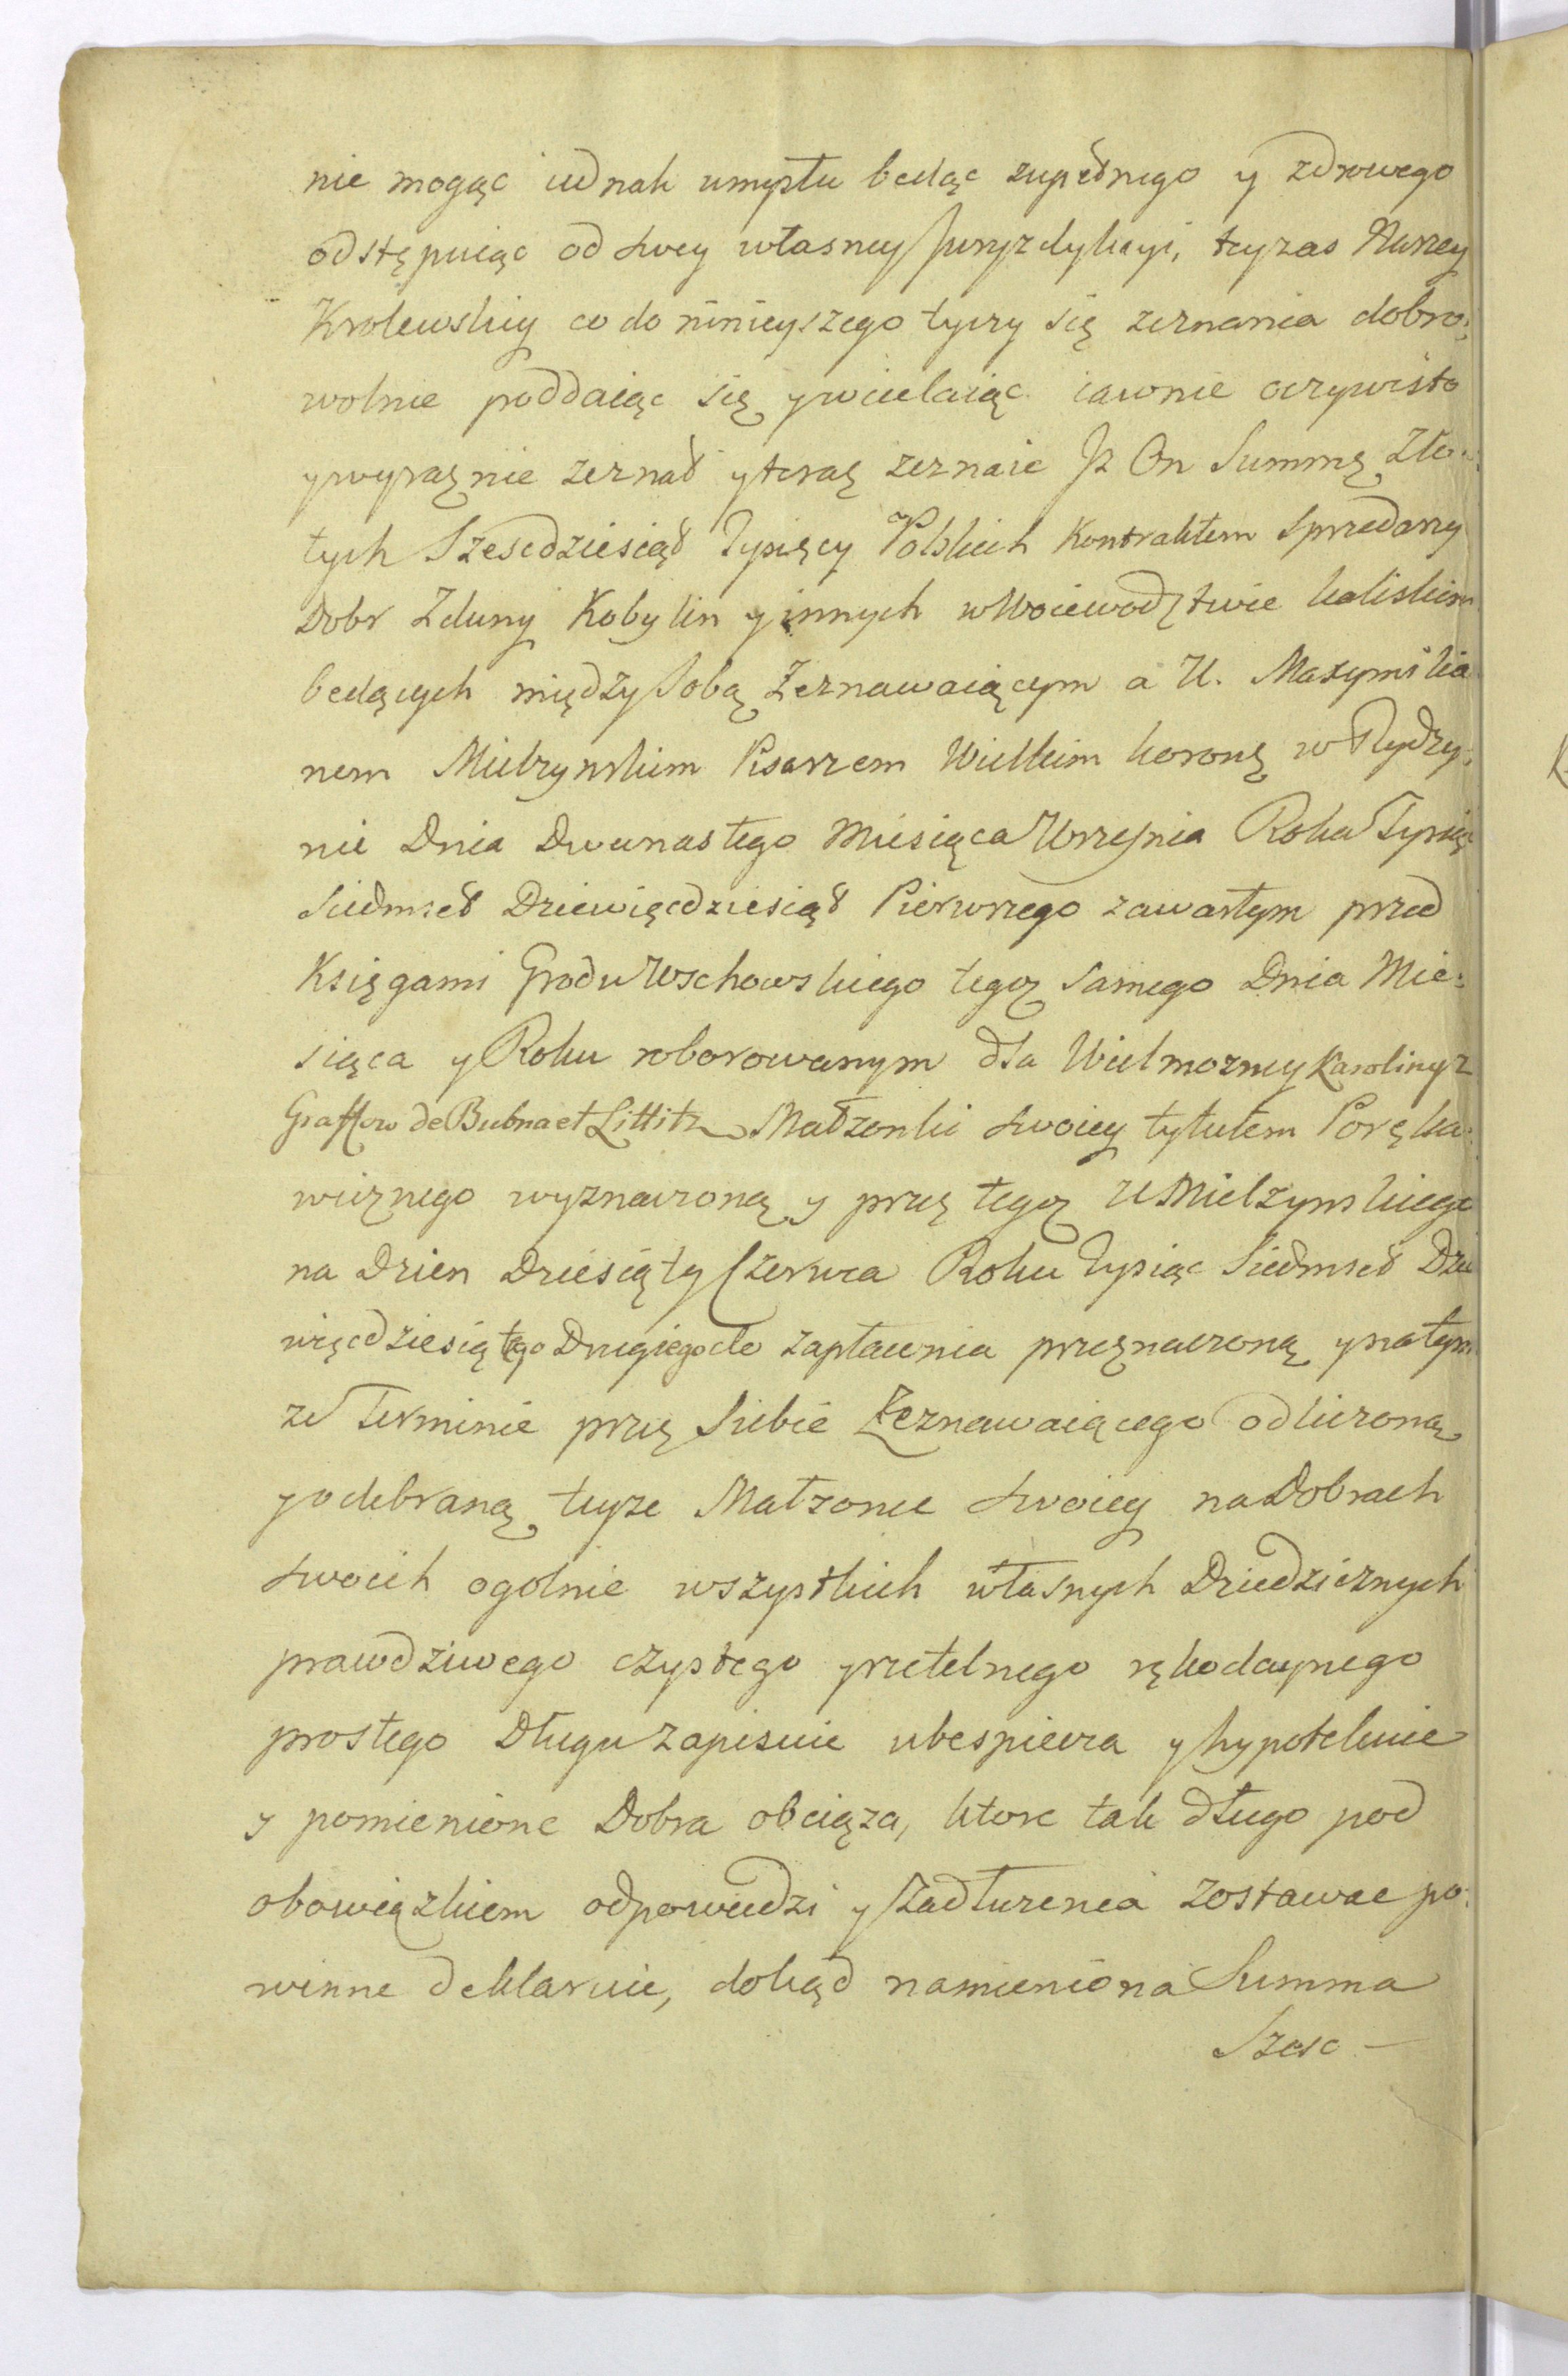 nie mogąc iednak umysłu będąc zupełnego y zdrowego
odstępuiąc od swey własney Juryzdykcyi, teyzas Naszey
Krolewskiey co do ninieyszego tyczy się zeznania dobro:
wolnie poddaiąc się y wcielaiąc iawnie oczywisto
y wyraznie zeznał y teraz zeznaie Jz On Summę Zło:
tych Szescdziesiąt Tysięcy Polskich Kontraktem Sprzedarzy
Dobr Zduny Kobylin y innych w Woiewodztwie kaliskim
będących między Sobą Zeznawaiącym a U. Maxymilia
nem Mielzynskim Pisarzem Wielkim koroną w Rydzy:
nie Dnia Dwunastego Miesiąca Wrzesnia Roku Tysiąc
Siedmset Dziewięcdziesiąt Pierwszego zawartym przed
Księgami Grodu Wschowskiego tegoz Samego Dnia Mie:
siąca y Roku roborowanym dla Wielmozney Karoliny z
Graffow de Bubna et Littitz Małzonki swoiey tytułem Poręka:
wicznego wyznaczoną y przez tegoz U Mielzynskiego
na Dzien Dziesiąty Czerwca Roku Tysiąc Siedmset Dzie
więcdziesiątego Drugiego do zapłacenia przeznaczoną y na tym
ze Terminie przez Siebie Zeznawaiącego odliczoną
y odebraną teyze Małzonce swoiey na Dobrach
swoich ogolnie wszystkich własnych Dziedzicznych
prawdziwego czystego y rzetelnego rękodaynego
prostego Długu zapisuie ubespiecza y hypotekuie
y pomienione Dobra obciąza, ktore tak długo pod
obowiązkiem odpowiedzi y zadłuzenia zostawac po:
winne deklaruie, dokąd namieniona Summa
Szesc —